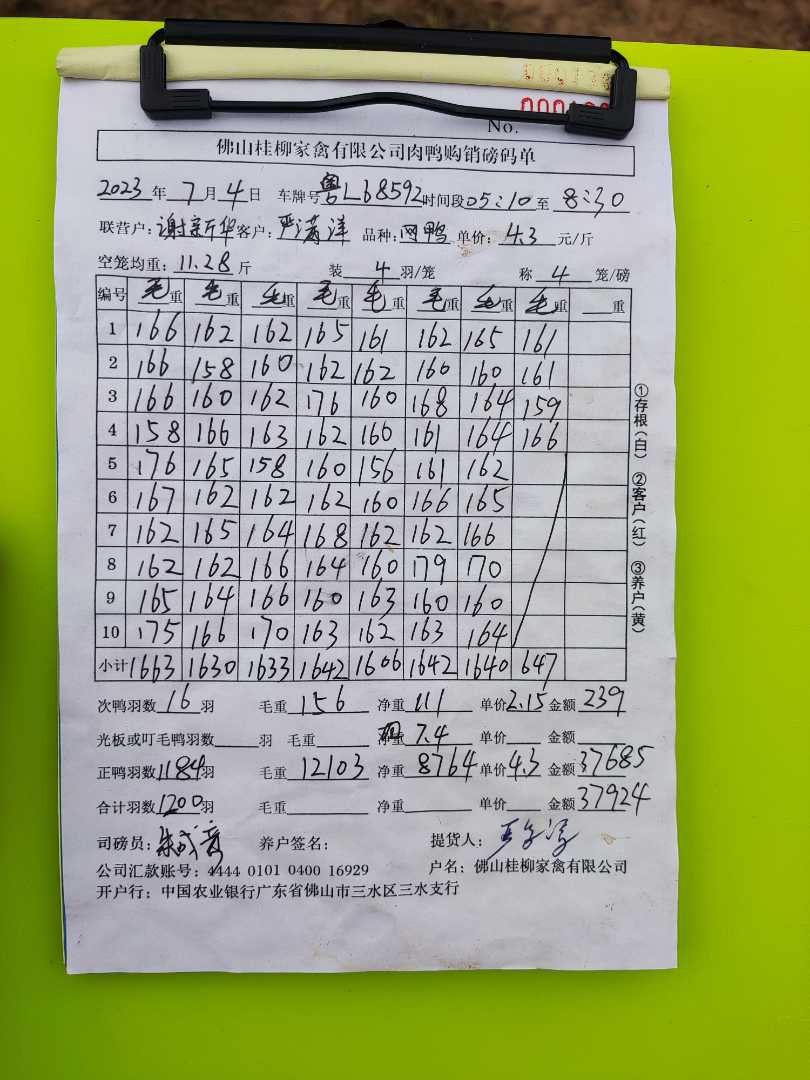 No.
佛山桂柳家禽有限公司肉鸭购销磅码单
2023 年 7 月 4 日 车牌号 粤L68592 时间段 05:10 至 8:30
联营户: 谢新华 客户: 严满洋 品种: 网鸭 单价: 4.3 元/斤
空笼均重: 11.28 斤 装 4 羽/笼 称 4 笼/磅
编号 毛重 毛重 毛重 毛重 毛重 毛重 毛重 毛重 重
1 166 162 162 165 161 162 165 161
2 166 158 160 162 162 160 160 161
3 166 160 162 176 160 168 164 159
4 158 166 163 162 160 161 164 166
5 176 165 158 160 156 161 162
6 167 162 162 162 160 166 165
7 162 165 164 168 162 162 166
8 162 162 166 164 160 179 170
9 165 164 166 160 163 160 160
10 175 166 170 163 162 163 164
小计 1663 1630 1633 1642 1606 1642 1640 647
次鸭羽数 16 羽 毛重 156 净重 111 单价 2.15 金额 239
光板或叮毛鸭羽数 羽 毛重 7.4 单价 金额
正鸭羽数 1184 羽 毛重 12103 净重 8764 单价 4.3 金额 37685
合计羽数 1200 羽 毛重 净重 单价 金额 37924
司磅员: 养户签名: 提货人:
公司汇款账号: 4444 0101 0400 16929 户名: 佛山桂柳家禽有限公司
开户行: 中国农业银行广东省佛山市三水区三水支行
①存根(白) ②客户(红) ③养户(黄)